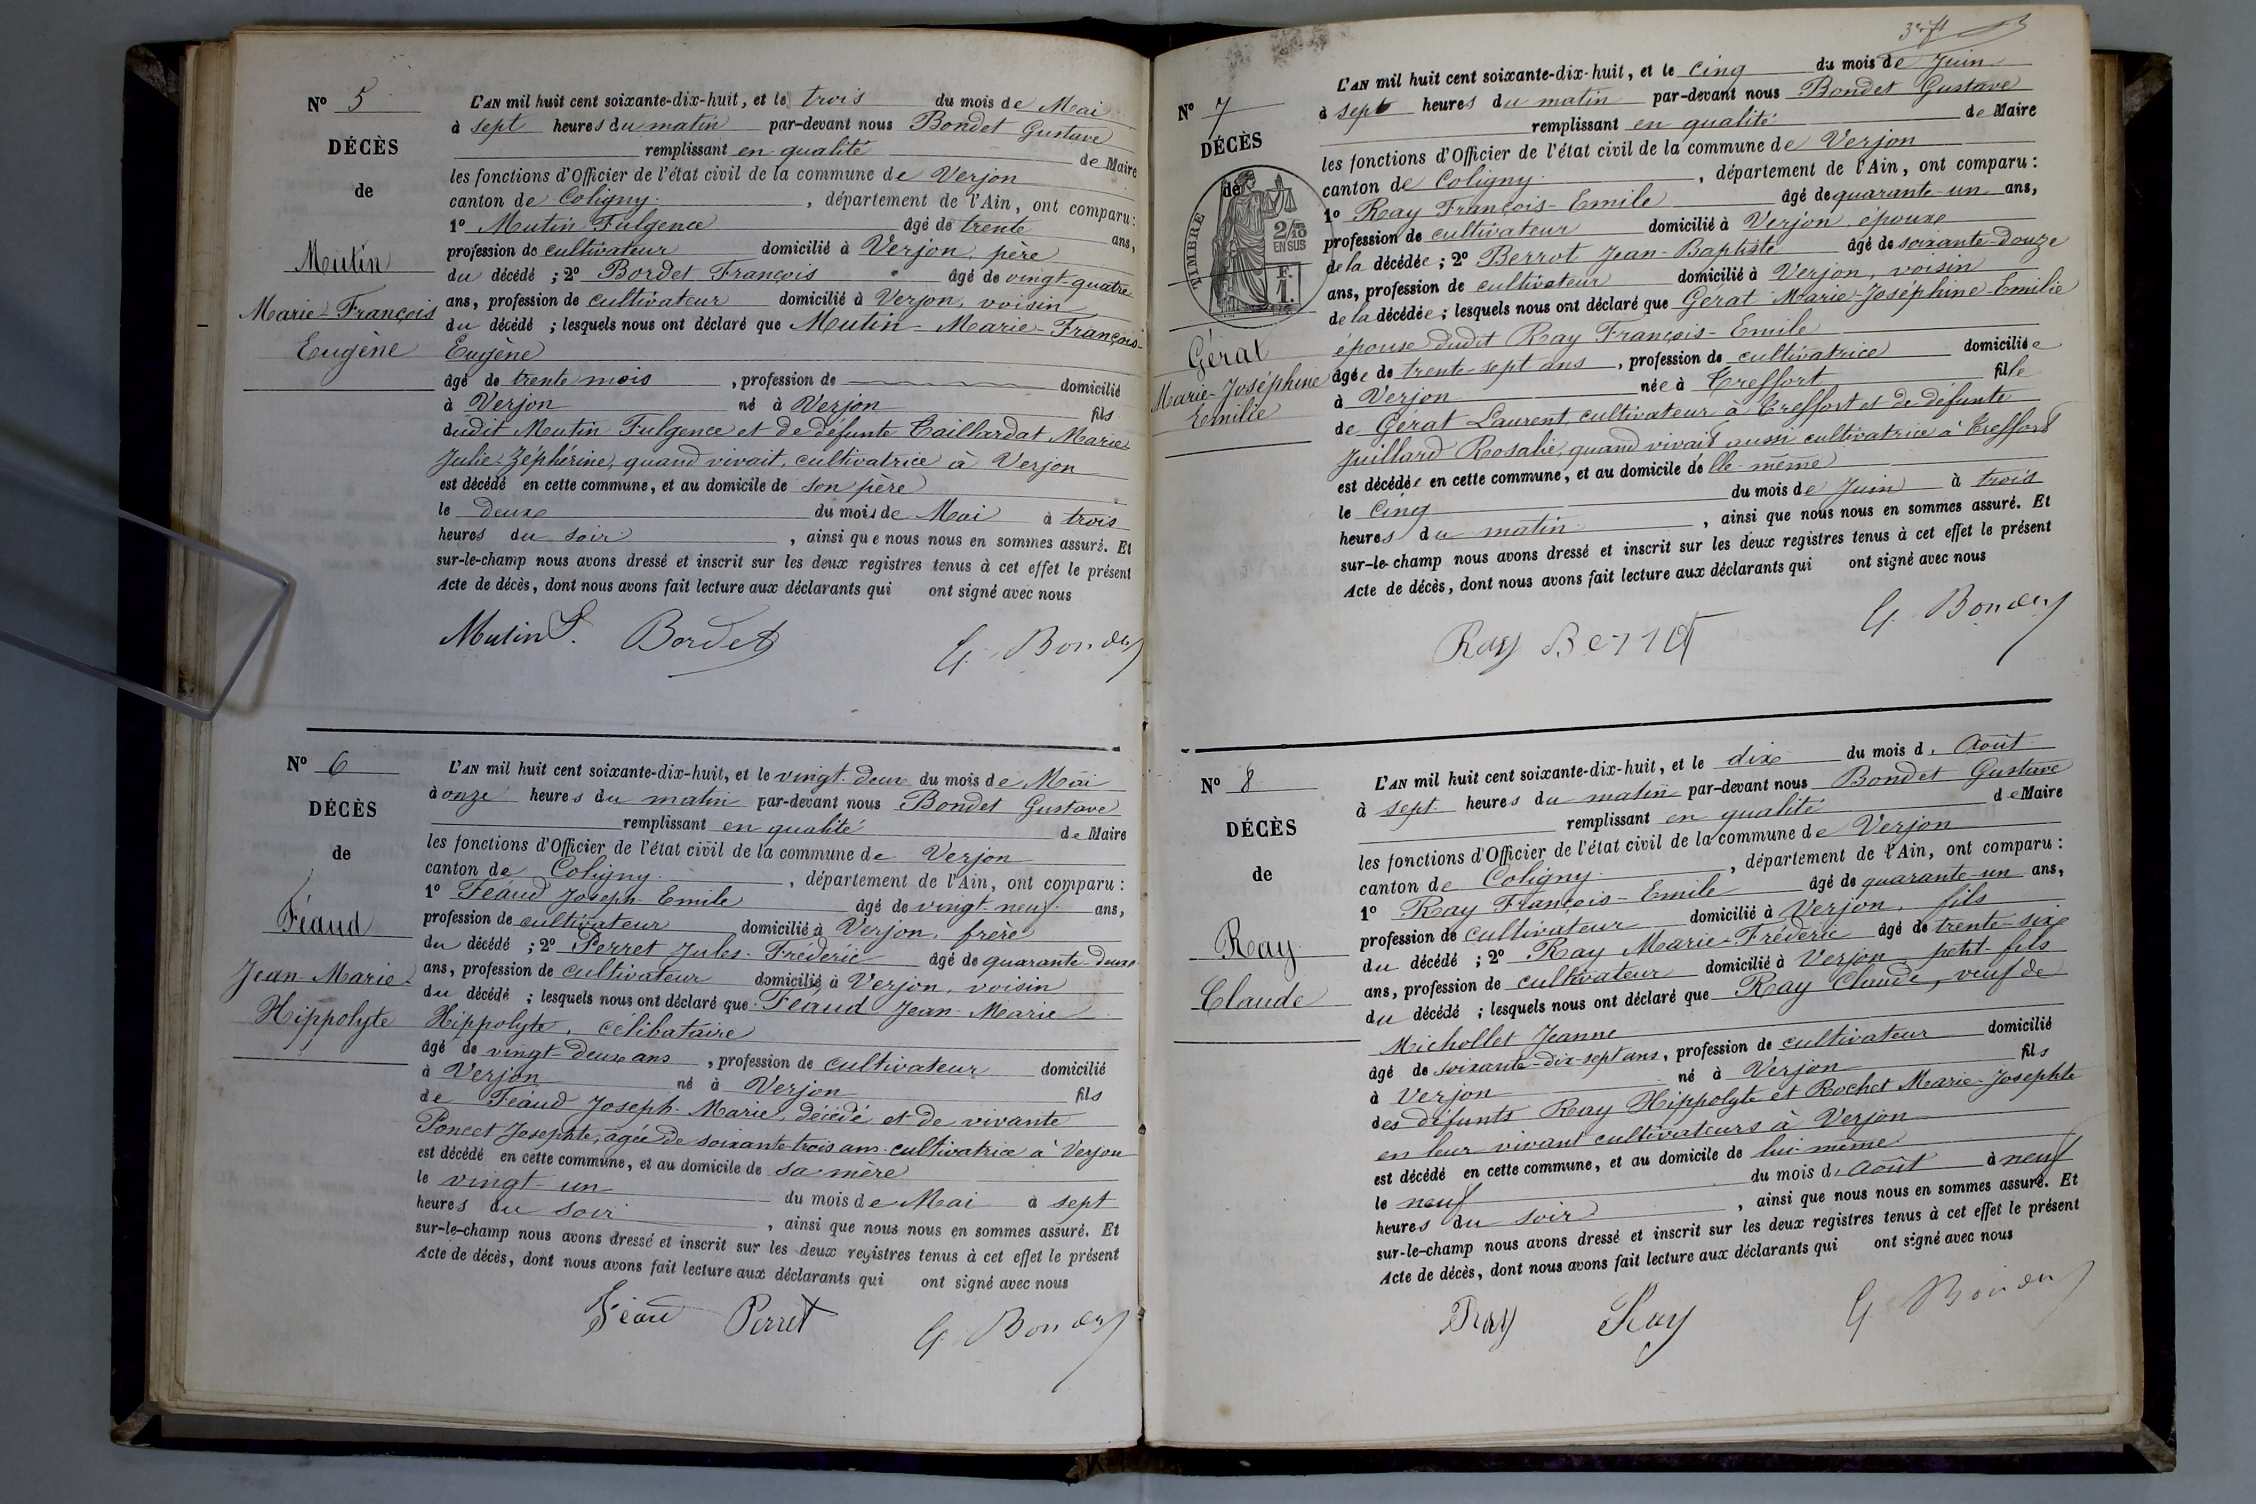 N° 5
DÉCÈS
de
Mutin
Marie-François
Eugène
L'AN mil huit cent soixante-dix-huit, et le trois du mois de Mai
à sept heures du matin par-devant nous Bondet Gustave
remplissant en qualité de Maire
les fonctions d'Officier de l'état civil de la commune de Verjon
canton de Coligny, département de l'Ain, ont comparu :
1° Mutin Fulgence âgé de trente ans,
profession de cultivateur domicilié à Verjon, père
du décédé ; 2° Bordet François âgé de vingt-quatre
ans, profession de cultivateur domicilié à Verjon, voisin
du décédé ; lesquels nous ont déclaré que Mutin-Marie-François-
Eugène
âgé de trente mois, profession de domicilié
à Verjon né à Verjon fils
dudit Mutin Fulgence et de défunte Caillardat Marie
Julie-Zéphérine, quand vivait, cultivatrice à Verjon
est décédé en cette commune, et au domicile de son père
le deux du mois de Mai à trois
heures du soir, ainsi que nous nous en sommes assuré. Et
sur-le-champ nous avons dressé et inscrit sur les deux registres tenus à cet effet le présent
Acte de décès, dont nous avons fait lecture aux déclarants qui ont signé avec nous
Mutin F. Bordet G. Bondet
N° 6
DÉCÈS
de
Féaud
Jean-Marie-
Hippolyte
L'AN mil huit cent soixante-dix-huit, et le vingt-deux du mois de Mai
à onze heures du matin par-devant nous Bondet Gustave
remplissant en qualité de Maire
les fonctions d'Officier de l'état civil de la commune de Verjon
canton de Coligny, département de l'Ain, ont comparu :
1° Féaud Joseph-Emile âgé de vingt-neuf ans,
profession de cultivateur domicilié à Verjon, frère
du décédé ; 2° Perret Jules-Frédéric âgé de quarante-deux
ans, profession de cultivateur domicilié à Verjon, voisin
du décédé ; lesquels nous ont déclaré que Féaud Jean-Marie
Hippolyte, célibataire
âgé de vingt-deux ans, profession de cultivateur domicilié
à Verjon né à Verjon fils
de Féaud Joseph-Marie, décédé et de vivante
Poncet Josephte, agée de soixante-trois ans cultivatrice à Verjon
est décédé en cette commune, et au domicile de sa mère
le vingt-un du mois de Mai à sept
heures du soir, ainsi que nous nous en sommes assuré. Et
sur-le-champ nous avons dressé et inscrit sur les deux registres tenus à cet effet le présent
Acte de décès, dont nous avons fait lecture aux déclarants qui ont signé avec nous
Féau Perret G. Bondet
N° 7
DÉCÈS
de
TIMBRE
2/10
EN SUS
F.
1.
Gérat
Marie-Joséphine
Emilie
L'AN mil huit cent soixante-dix-huit, et le cinq du mois de Juin
à sept heures du matin par-devant nous Bondet Gustave
remplissant en qualité de Maire
les fonctions d'Officier de l'état civil de la commune de Verjon
canton de Coligny, département de l'Ain, ont comparu :
1° Ray François-Emile âgé de quarante-un ans,
profession de cultivateur domicilié à Verjon, époux
de la décédée ; 2° Berrot Jean-Baptiste âgé de soixante-douze
ans, profession de cultivateur domicilié à Verjon, voisin
de la décédée ; lesquels nous ont déclaré que Gerat Marie-Joséphine-Emilie
épouse dudit Ray François-Emile
âgée de trente-sept ans, profession de cultivatrice domiciliée
à Verjon née à Treffort fille
de Gérat Laurent, cultivateur à Treffort et de défunte
Juillard Rosalie, quand vivait aussi cultivatrice à Treffort
est décédée en cette commune, et au domicile d'elle-même
le cinq du mois de Juin à trois
heures du matin, ainsi que nous nous en sommes assuré. Et
sur-le-champ nous avons dressé et inscrit sur les deux registres tenus à cet effet le présent
Acte de décès, dont nous avons fait lecture aux déclarants qui ont signé avec nous
Ray Berrot G. Bondet
N° 8
DÉCÈS
de
Ray
Claude
L'AN mil huit cent soixante-dix-huit, et le dix du mois d'Août
à sept heures du matin par-devant nous Bondet Gustave
remplissant en qualité de Maire
les fonctions d'Officier de l'état civil de la commune de Verjon
canton de Coligny, département de l'Ain, ont comparu :
1° Ray François-Emile âgé de quarante-un ans,
profession de cultivateur domicilié à Verjon, fils
du décédé ; 2° Ray Marie-Fréderic âgé de trente-six
ans, profession de cultivateur domicilié à Verjon petit-fils
du décédé ; lesquels nous ont déclaré que Ray Claude, veuf de
Michollet Jeanne
âgé de soixante-dix-sept ans, profession de cultivateur domicilié
à Verjon né à Verjon fils
des défunts Ray Hippolyte et Rochet Marie-Josephte
en leur vivant cultivateurs à Verjon
est décédé en cette commune, et au domicile de lui-même
le neuf du mois d'Août à neuf
heures du soir, ainsi que nous nous en sommes assuré. Et
sur-le-champ nous avons dressé et inscrit sur les deux registres tenus à cet effet le présent
Acte de décès, dont nous avons fait lecture aux déclarants qui ont signé avec nous
Ray Ray G. Bondet